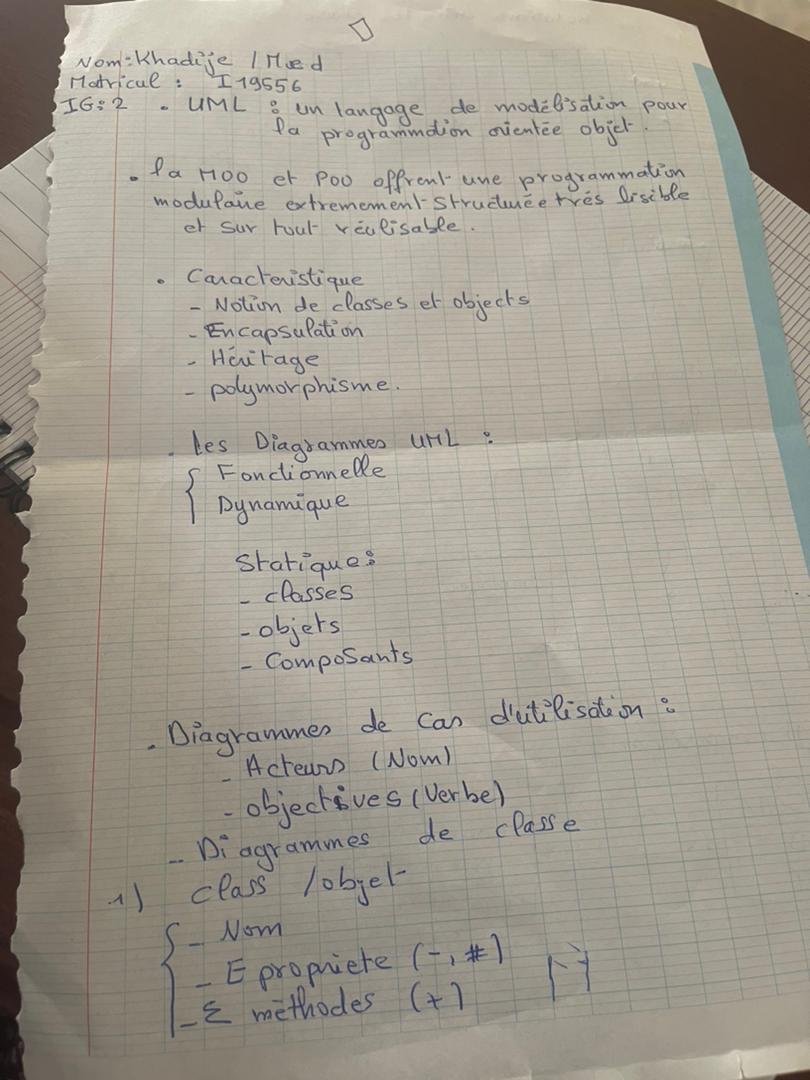 Nom: Khadije / Med
Matricul : I19556
IG: 2 . UML : un langage de modélisation pour
la programmation orientée objet.
. la MOO et POO offrent une programmation
modulaire extremement structurée très lisible
et sur tout réulisable.
. Caracteristique
- Notion de classes et objects
- Encapsulation
- Héritage
- polymorphisme.
. les Diagrammes UML :
{ Fonctionnelle
Dynamique
Statique:
- classes
- objets
- Composants
. Diagrammes de Cas d'utilisation :
- Acteurs (Nom)
- objectives (Verbe)
- Diagrammes de classe
1) class / objet
{ - Nom
- E propriete (-, #)
- Σ méthodes (+)